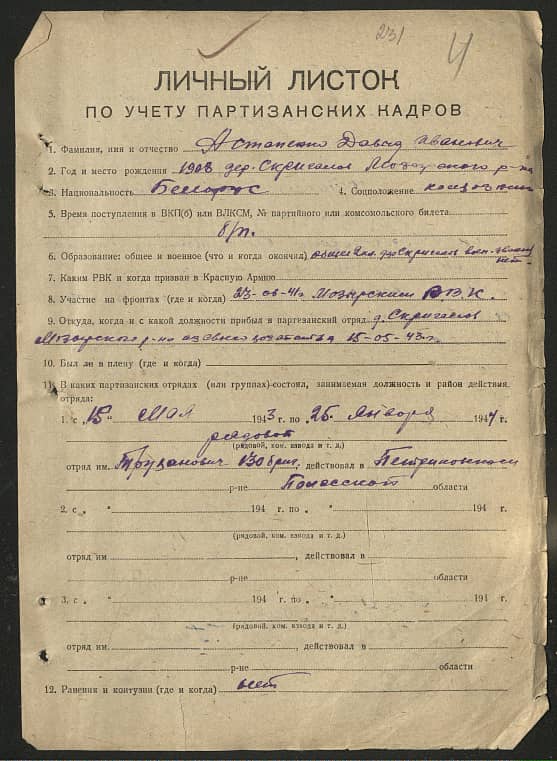 231
4
ЛИЧНЫЙ ЛИСТОК
ПО УЧЕТУ ПАРТИЗАНСКИХ КАДРОВ
1. Фамилия, имя и отчество Астапенко Давид Иванович
2. Год и место рождения 1908 дер. Скригалов Мозырского р-на
3. Национальность Белорус 4. Соцположение
5. Время поступления в ВКП(б) или ВЛКСМ, № партийного или комсомольского билета
б/п.
6. Образование: общее и военное (что и когда окончил) общее Скригалов
нет
7. Каким РВК и когда призван в Красную Армию
8. Участие на фронтах (где и когда) 23-06-41г. Мозырским Р.В.К.
9. Откуда, когда и с какой должности прибыл в партизанский отряд д. Скригалов
Мозырского р-на 15-05-43 г.
10. Был ли в плену (где и когда)
11. В каких партизанских отрядах (или группах) состоял, занимаемая должность и район действия
отряда:
1. с „15“ Мая 1943 г. по 25 Января 1944 г.
рядовой
(рядовой, ком. взвода и т. д.)
отряд им. 130 бриг, действовал в Петриковском
р-не Полесской области
2. с „ “ 194 г. по „ “ 194 г.
(рядовой, ком. взвода и т. д.)
отряд им , действовал в
р-не области
3. с „ “ 194 г. по „ “ 194 г.
(рядовой, ком. взвода и т. д.)
отряд им. , действовал в
р-не области
12. Ранения и контузии (где и когда) нет